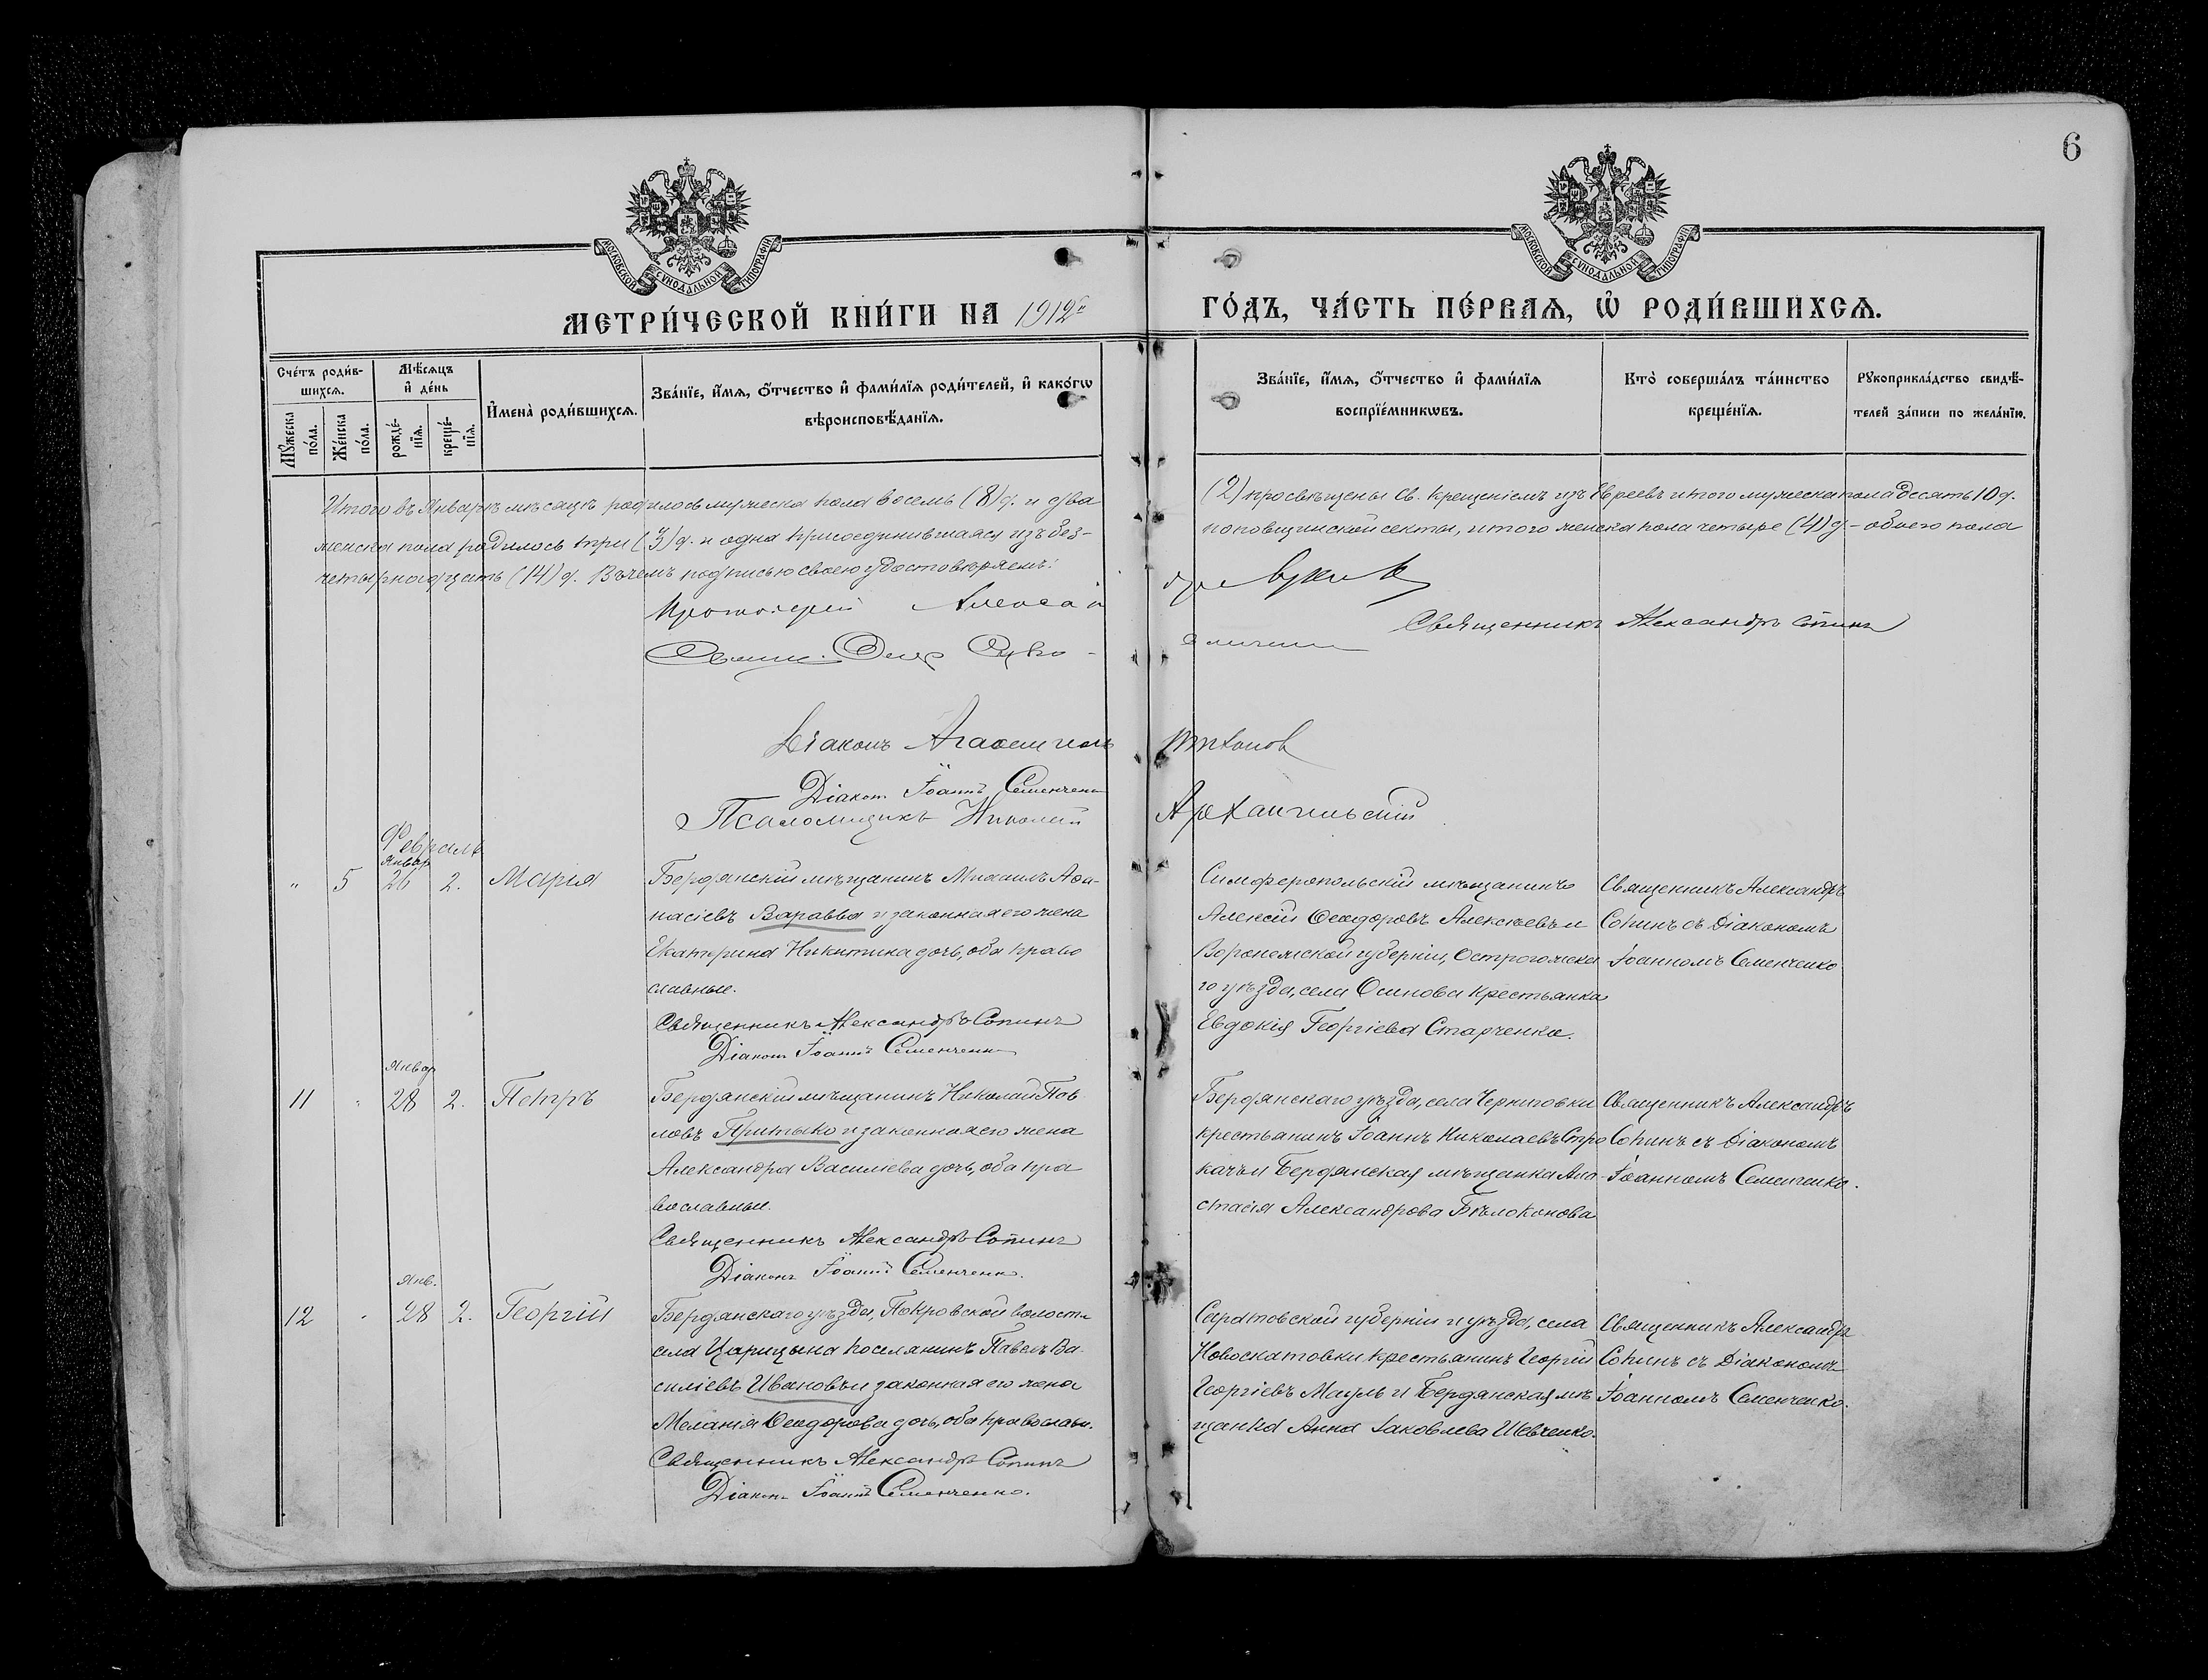 6
МОСКОВСКОЙ СУНОДАЛЬНОЙ ТИПОГРАФIИ
МОСКОВСКОЙ СУНОДАЛЬНОЙ ТИПОГРАФIИ
МЕТРИ́ЧЕСКОЙ КНИ́ГИ НА 1912й
ГО́ДЪ, ЧА́СТЬ ПЕ́РВАЯ, Ѡ҆ РОДИ́ВШИХСЯ.
Счéтъ роди́в-
шихся.
Мѣ́сяцъ
и҆ де́нь
Мꙋ́жеска
по́ла.
Же́нска
по́ла.
рожде́-
нїя.
креще́-
нїя.
И҆мена̀ роди́вшихся.
Зва́нїе, и҆́мя, ѻ҆́тчество и҆ фами́лїя роди́телей, и҆ како́гѡ
вѣроисповѣ́данїя.
Зва́нїе, и҆́мя, ѻ҆́тчество и҆ фами́лїя
воспрїе́мникѡвъ.
Кто̀ соверша́лъ та́инство
креще́нїя.
Рꙋкоприкла́дство свидѣ́-
телей за́писи по жела́нїю.
Итого въ Январѣ мѣсяцѣ родилось мужеска пола восемь (8) д. и два
(2) просвѣщены Св. Крещенiемъ изъ Евреевъ итого мужеска пола десять 10 д.
женска пола родилось три (3) д. и одна присоединившаяся изъ без-
поповщинской секты, итого женска пола четыре (4) д. - обоего пола
четырнадцать (14) д. Въ чемъ подписью своею удостовѣряемъ:
Протоiерей Алексѣй
Священникъ Александръ Сопинъ
Дiаконъ
Дiаконъ Iоаннъ Семенченко
Псаломщикъ Николай Архангельскiй
Февраль
Январ
" 5 26 2. Марiя
Бердянскiй мѣщанинъ Михаилъ Аѳа-
насiевъ Варавва и законная его жена
Екатерина Никитина дочь, оба право
славные.
Священникъ Александръ Сопинъ
Дiаконъ Iоаннъ Семенченко
Симферопольскiй мѣщанинъ
Алексiй Ѳеодоровъ Алексѣевъ и
Воронежской губернiи, Острогожска
го уѣзда, села Осинова крестьянка
Евдокiя Георгiева Старченко.
Священникъ Александръ
Сопинъ съ Дiакономъ
Iоанномъ Семенченко
Январ
11 " 28 2. Петръ
Бердянскiй мѣщанинъ Николай Пав
ловъ Притыко и законная его жена
Александра Васильева дочь, оба пра
вославные.
Священникъ Александръ Сопинъ
Дiаконъ Iоаннъ Семенченко.
Бердянскаго уѣзда, села Черниговки
крестьянинъ Iоаннъ Николаевъ Стро
качъ и Бердянская мѣщанка Ана-
стасiя Александрова Бѣлоконова
Священникъ Александръ
Сопинъ съ Дiакономъ
Iоанномъ Семенченко.
Янв.
12 " 28 2. Георгiй
Бердянскаго уѣзда, Покровской волости
села Царицына поселянинъ Павелъ Ва-
силiевъ Ивановъ и законная его жена
Меланiя Ѳеодорова дочь, оба православн.
Священникъ Александръ Сопинъ
Дiаконъ Iоаннъ Семенченко.
Саратовской губернiи и уѣзда, села
Новоскатовки крестьянинъ Георгiй
Георгiевъ Мауль и Бердянская мѣ
щанка Анна Iаковлева Шевченко.
Священникъ Александръ
Сопинъ съ Дiакономъ
Iоанномъ Семенченко.